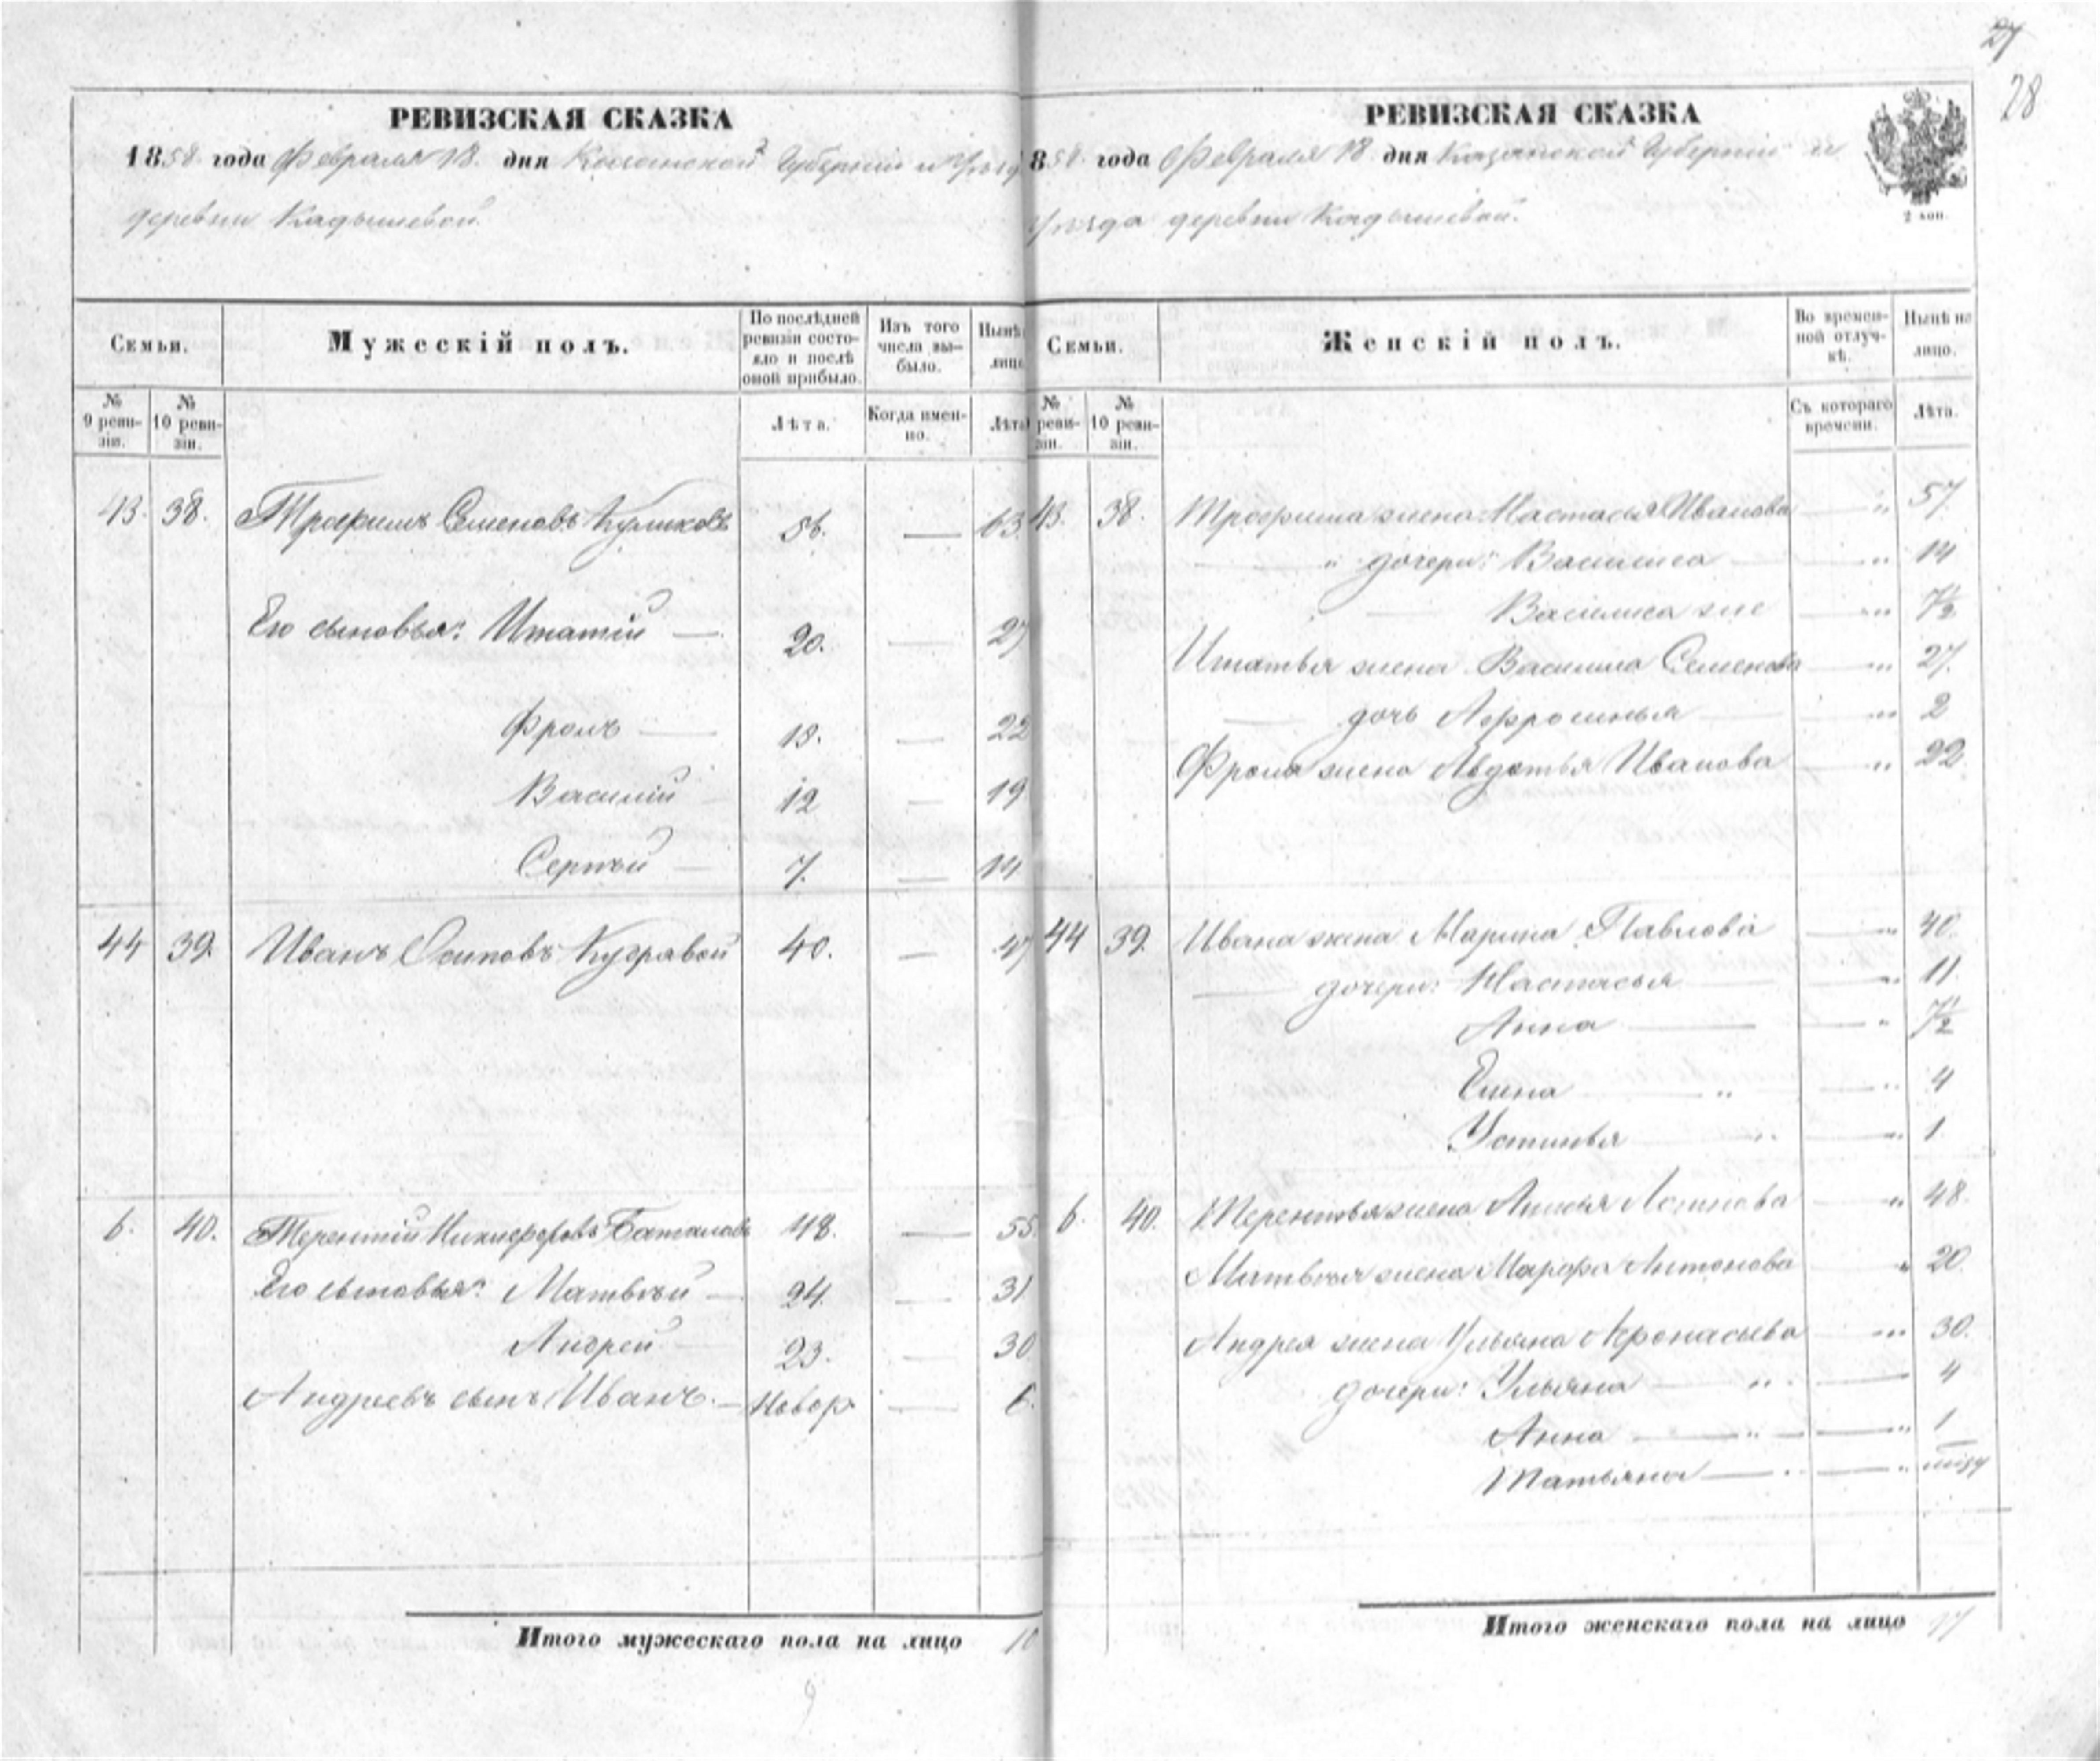 27
28
РЕВИЗСКАЯ СКАЗКА
1858 года Февраля 18. дня Казанской Губерніи и Уѣзд
деревни Кадышевой.
Семьи.
Мужескій полъ.
По послѣдней ревизіи состояло и послѣ оной прибыло.
Изъ того числа выбыло.
Нынѣ лицо
№ 9 ревизіи.
№ 10 ревизіи.
Лѣта.
Когда именно.
Лѣта
43. 38. Трофимъ Семеновъ Куликовъ 56. — 63.
Его сыновья: Игнатій — 20. — 27
Фролъ — 15. — 22
Василій 12 — 19
Сергѣй — 7. — 14
44 39. Иванъ Осиповъ Кудрявой 40. — 47
6. 40. Терентій Никифоровъ Баталовъ 48. — 55.
Его сыновья: Матвѣй — 24. — 31
Андрей — 23. — 30
Андреевъ сынъ Иванъ. — Новор. — 6.
Итого мужескаго пола на лицо 10
9
РЕВИЗСКАЯ СКАЗКА
858 года Февраля 18 дня Казанской Губерніи и
Уѣзда деревни Кадышевой.
2 коп.
Семьи.
Женскій полъ.
Во временной отлучкѣ.
Нынѣ на лицо.
№ ревизіи.
№ 10 ревизіи.
Съ котораго времени.
Лѣта.
43. 38. Трофима жена Настасья Иванова — " 57.
" дочери: Василиса — " 14
— Василиса же — " 7½
Игнатья жена Василиса Семенова — " 27.
— дочь Афросинья — " 2
Фрола жена Авдотья Иванова — " 22.
44 39. Ивана жена Марина Павлова — " 40.
— дочери: Настасья — " 11.
Анна — " 7½
Елена — " — " 4
Устинья — " — " 1.
6. 40. Терентья жена Анисья Логинова — " 48.
Матвѣя жена Марфа Антонова — " 20
Андрея жена Ульяна Афонасьева — " 30.
дочери: Ульяна — " — 4
Анна — " — " 1
Татьяна — " — "
Итого женскаго пола на лицо 17